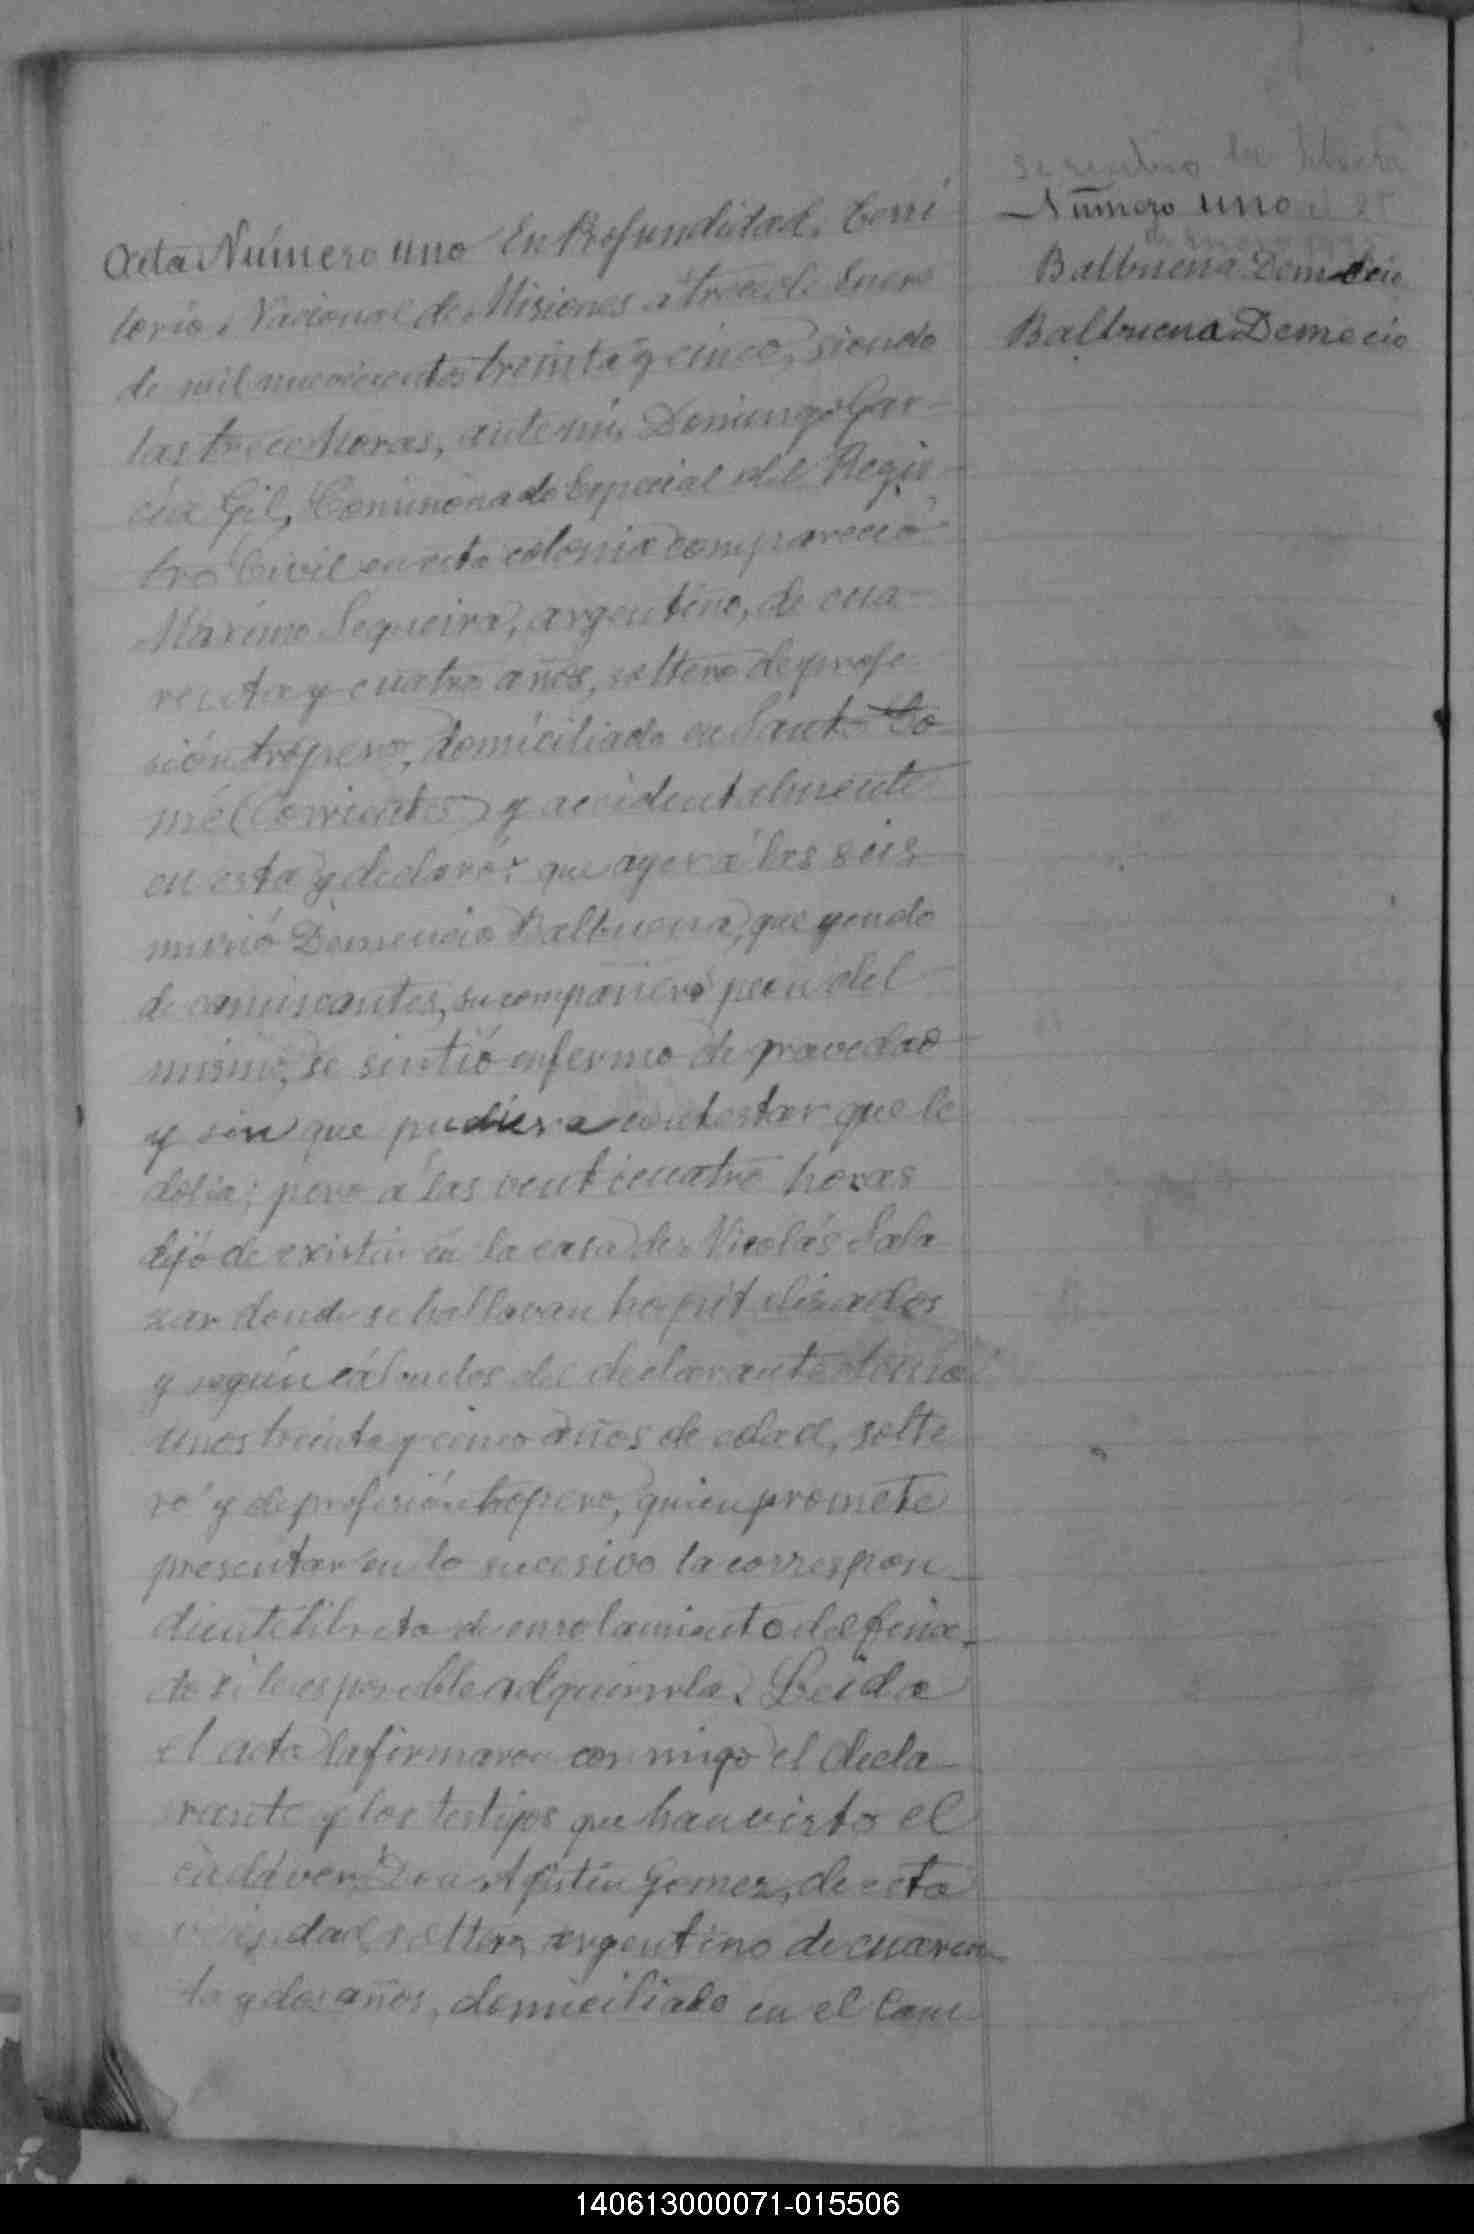 Acta Número uno En Profundidad, Terri
torio Nacional de Misiones a trece de Enero
de mil novecientos treinta y cinco, siendo
las trece horas, ante mí, Domingo Gar-
cía Gil, Comisionado Especial del Regis-
tro Civil en esta colonia compareció
Máximo Sequeira, argentino, de cua-
renta y cuatro años, soltero de profe-
sión tropero, domiciliado en Santo To-
mé (Corrientes) y accidentalmente
en esta y declaró: que ayer a las seis
murió Demencio Balbuena, que yendo
de caminantes, su compañero peon del
mismo, se sintió enfermo de gravedad
y sin que pudiera contestar que le
dolia; pero a las venticuatro horas
dejó de existir en la casa de Nicolás Sala
zar donde se hallavan hospitalisados
y según cálculos del declarante tenía
unos treinta y cinco años de edad, solte
ro y de profesión tropero, quien promete
presentar en lo sucesivo la correspon-
diente libreta de enrolamiento del fina-
do si le es posible adquirirla. Leida
el acta la firmaron conmigo el decla-
rante y los testijos que han visto el
cadáver Don Agustin Gomez, de esta
vecindad, soltero, argentino de cuaren-
ta y dos años, domiciliado en el Cam
se retiro la libreta
Número uno el 25
de enero 1935
Balbuena Demecio
Balbuena Demecio
140613000071-015506